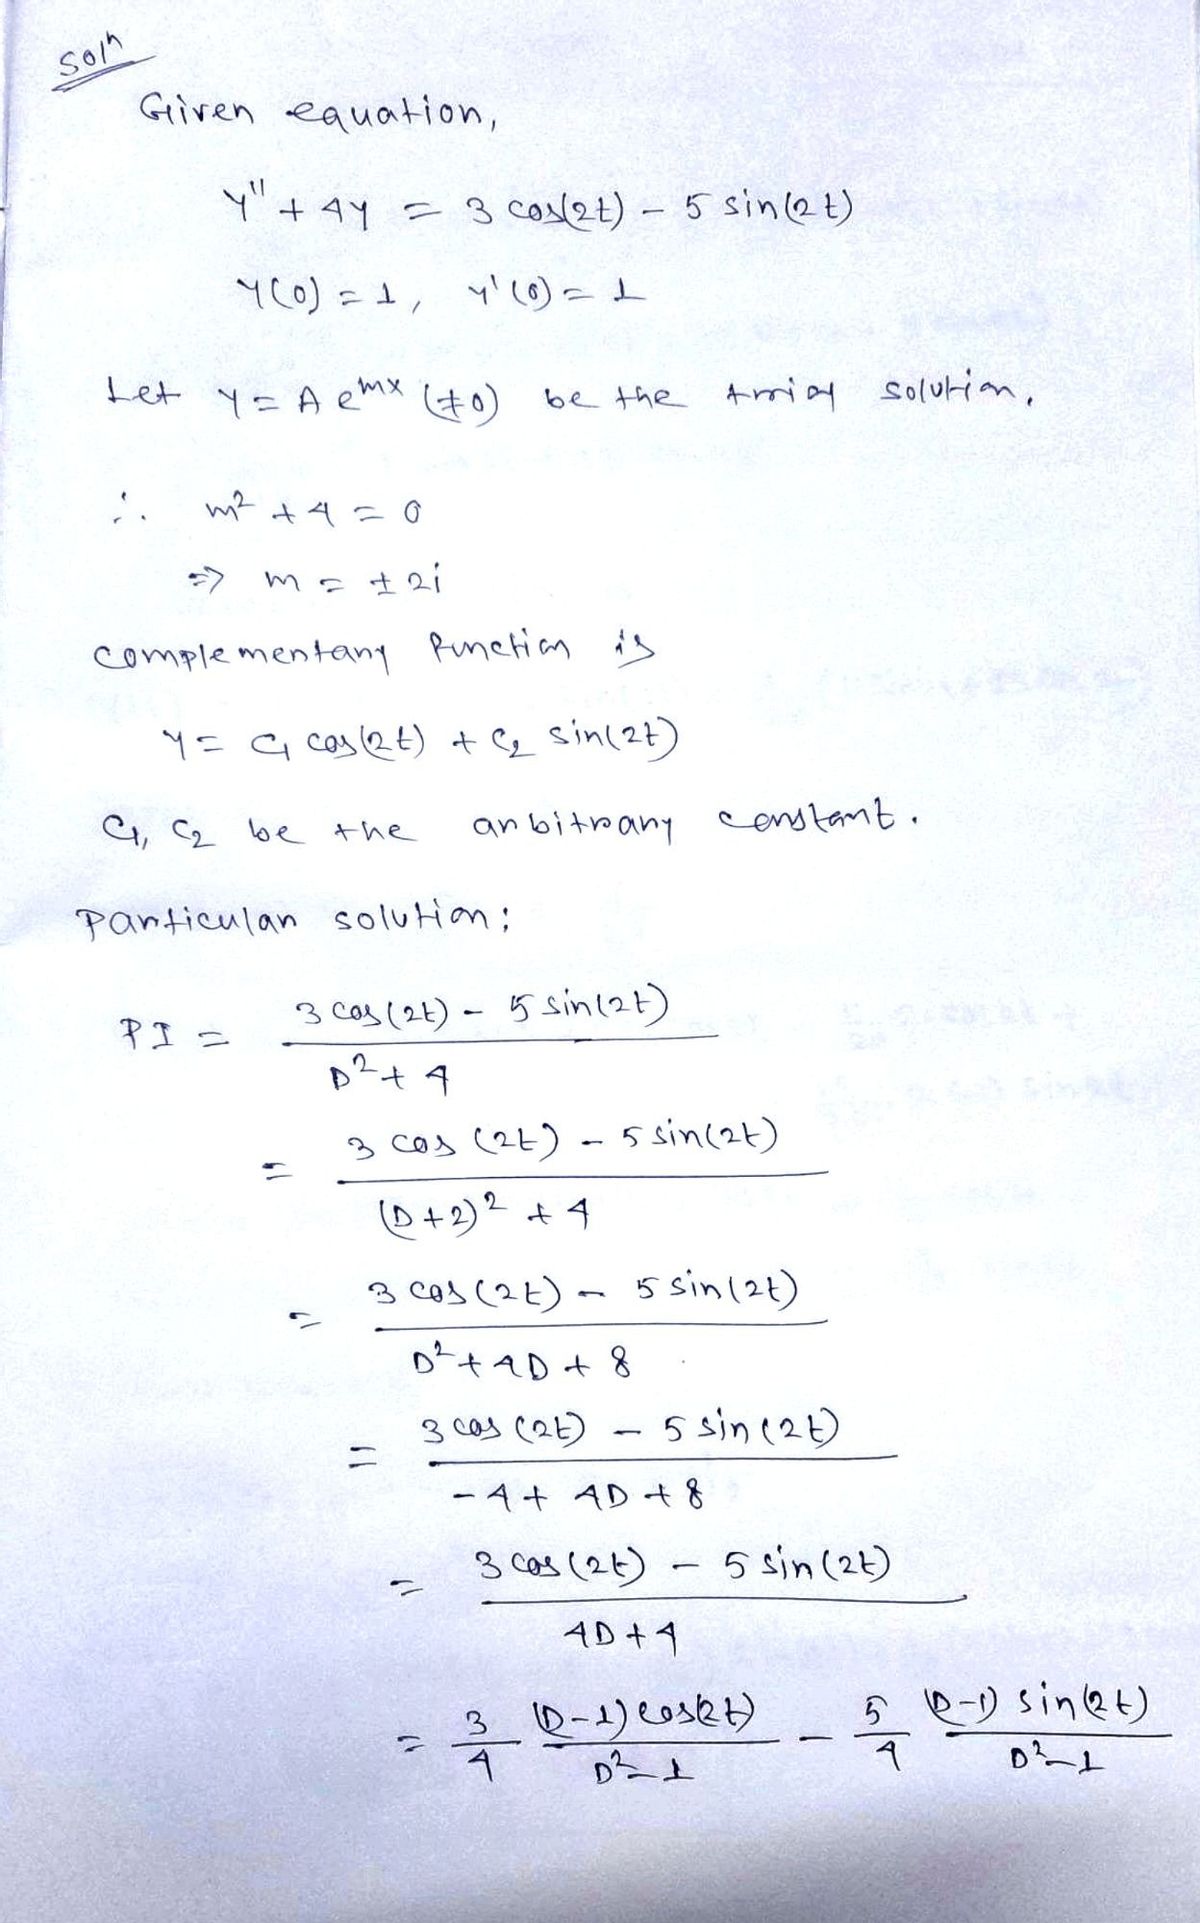 Soln
Given equation,
y'' + 4y = 3 cos(2t) - 5 sin(2t)
y(0) = 1, y'(0) = 1
Let y = A e^mx (≠0) be the trial solution.
∴ m² + 4 = 0
=> m = ± 2i
complementary function is
y = C₁ cos(2t) + C₂ sin(2t)
C₁, C₂ be the arbitrary constant.
Particular solution;
PI = 3 cos(2t) - 5 sin(2t) / D² + 4
= 3 cos(2t) - 5 sin(2t) / (D+2)² + 4
= 3 cos(2t) - 5 sin(2t) / D² + 4D + 8
= 3 cos(2t) - 5 sin(2t) / -4 + 4D + 8
= 3 cos(2t) - 5 sin(2t) / 4D + 4
= 3/4 (D-1) cos(2t) / D²-1 - 5/4 (D-1) sin(2t) / D²-1